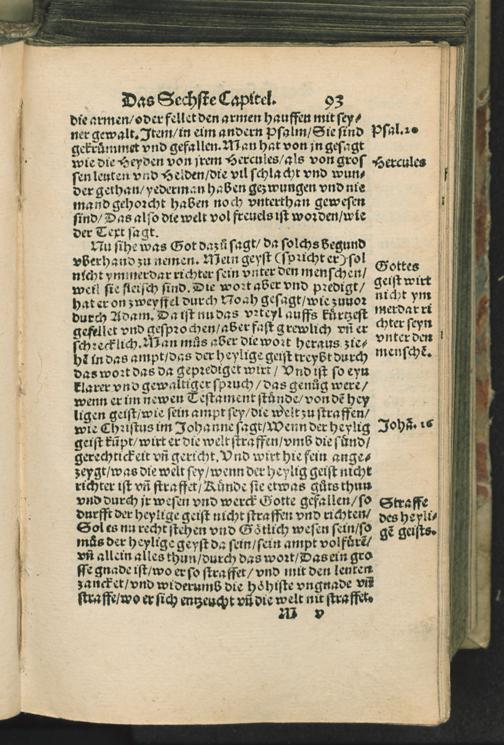 Das Sechste Capitel. 93
die armen/oder fellet den armen hauffen mit sey⸗
ner gewalt. Item/in eim andern Psalm/Sie sind
gekrümmet vnd gefallen. Man hat von jn gesagt
wie die Heyden von jrem Hercules/als von gros
sen leuten vnd Helden/die vil schlacht vnd wun⸗
der gethan/yederman haben gezwungen vnd nie
mand gehorcht haben noch vnterthan gewesen
sind/Das also die welt vol freuels ist worden/wie
der Text sagt.
Nu sihe was Got dazů sagt/da solchs begund
vberhand zu nemen. Mein geyst (spricht er) sol
nicht ymmerdar richter sein vnter den menschen/
weil sie fleisch sind. Die wort aber vnd predigt/
hat er on zweyffel durch Noah gesagt/wie zuuor
durch Adam. Da ist nu das vrteyl auffs kürtzest
gefellet vnd gesprochen/aber fast grewlich vñ er
schrecklich. Man můs aber die wort heraus zie⸗
hẽ in das ampt/das der heylige geist treybt durch
das wort das da geprediget wirt/ Vnd ist so eyn
klarer vnd gewaltiger spruch/das genůg were/
wenn er im newen Testament stünde/von dẽ hey
ligen geist/wie sein ampt sey/die welt zu straffen/
wie Christus im Johanne sagt/Wenn der heylig
geist kũpt/wirt er die welt straffen/vmb die sünd/
gerechtickeit vñ gericht. Vnd wirt hie fein ange⸗
zeygt/was die welt sey/wenn der heylig geist nicht
richter ist vñ straffet/Künde sie etwas gůts thun
vnd durch jr wesen vnd werck Gotte gefallen/so
durfft der heylige geist nicht straffen vnd richten/
Sol es nu recht stehen vnd Götlich wesen sein/so
můs der heylige geyst da sein/sein ampt volfürẽ/
vñ allein alles thun/durch das wort/Das ein gro
sse gnade ist/wo er so straffet/vnd mit den leuten
zancket/vnd widerumb die höhiste vngnade vñ
straffe/wo er sich entzeucht vñ die welt nit straffet.
M v
Psal. 20
Hercules
Gottes
geist wirt
nicht ym
merdar ri
chter seyn
vnter den
menschẽ.
Johã. 16
Straffe
des heyli⸗
gẽ geists.